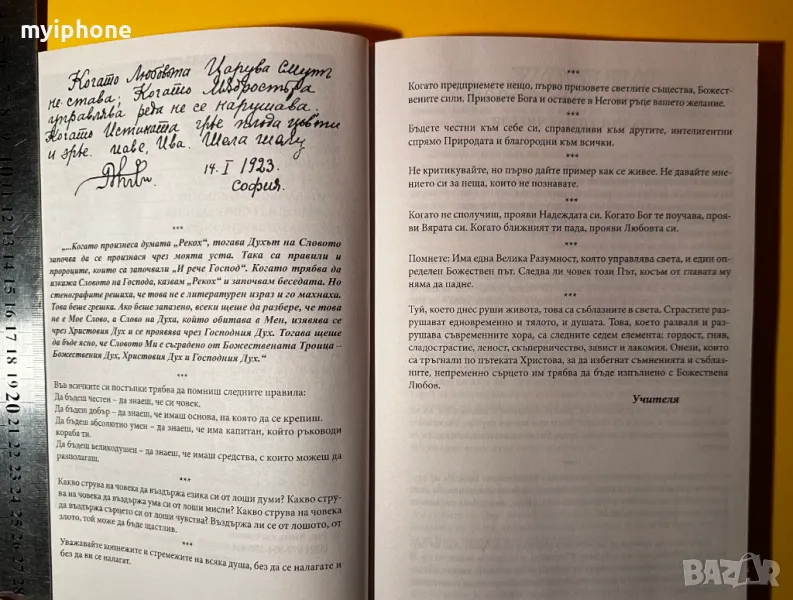 myiphone
Когато Любовта Царува Смут
не става; Когато Мъдростъта
управлява реда не се нарушава.
Когато Истината грѣе плода цъвти
и зрѣе.
14. I 1923.
София.
***
„...Когато произнеса думата „Рекох“, тогава Духът на Словото
започва да се произнася чрез моята уста. Така са правили и
пророците, които са започвали „И рече Господ“. Когато трябва да
изкажа Словото на Господа, казвам „Рекох“ и започвам беседата. Но
стенографите решиха, че това не е литературен израз и го махнаха.
Това беше грешка. Ако беше запазено, всеки щеше да разбере, че това
не е Мое Слово, а Слово на Духа, който обитава в Мен, изявява се
чрез Христовия Дух и се проявява чрез Господния Дух. Тогава щеше
да бъде ясно, че Словото Ми е съградено от Божествената Троица –
Божествения Дух, Христовия Дух и Господния Дух.“
***
Във всичките си постъпки трябва да помниш следните правила:
Да бъдеш честен – да знаеш, че си човек.
Да бъдеш добър – да знаеш, че имаш основа, на която да се крепиш.
Да бъдеш абсолютно умен – да знаеш, че има капитан, който ръководи
кораба ти.
Да бъдеш великодушен – да знаеш, че имаш средства, с които можеш да
разполагаш.
***
Какво струва на човека да въздържа езика си от лоши думи? Какво стру-
ва на човека да въздържа ума си от лоши мисли? Какво струва на човека
да въздържа сърцето си от лоши чувства? Въздържа ли се от лошото, от
злото, той може да бъде щастлив.
***
Уважавайте копнежите и стремежите на всяка душа, без да се налагате и
без да ви се налагат.
***
Когато предприемете нещо, първо призовете светлите същества, Божест-
вените сили. Призовете Бога и оставете в Негови ръце вашето желание.
***
Бъдете честни към себе си, справедливи към другите, интелигентни
спрямо Природата и благородни към всички.
***
Не критикувайте, но първо дайте пример как се живее. Не давайте мне-
нието си за неща, които не познавате.
***
Когато не сполучиш, прояви Надеждата си. Когато Бог те поучава, проя-
ви Вярата си. Когато ближният ти пада, прояви Любовта си.
***
Помнете: Има една Велика Разумност, която управлява света, и един оп-
ределен Божествен път. Следва ли човек този Път, косъм от главата му
няма да падне.
***
Туй, което днес руши живота, това са съблазните в света. Страстите раз-
рушават едновременно и тялото, и душата. Това, което разваля и раз-
рушава съвременните хора, са следните седем елемента: гордост, гняв,
сладострастие, леност, скъперничество, завист и лакомия. Онези, които
са тръгнали по пътеката Христова, за да избегнат съмненията и съблаз-
ните, непременно сърцето им трябва да бъде изпълнено с Божествена
Любов.
Учителя
5 6 7 8 9 10 11 12 13 14 15 16 17 18 19 20 21 22 23 24 25 26 27 28
BAZAR